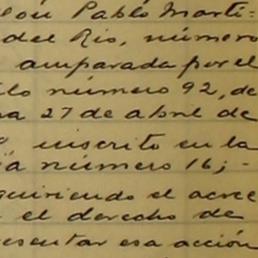 Pablo Marti-
del Rio, número
amparada por el
número 92, de
27 de abril de
inscrito en la
número 16; -
quiriendo el acree
el derecho de
esentar esa acción